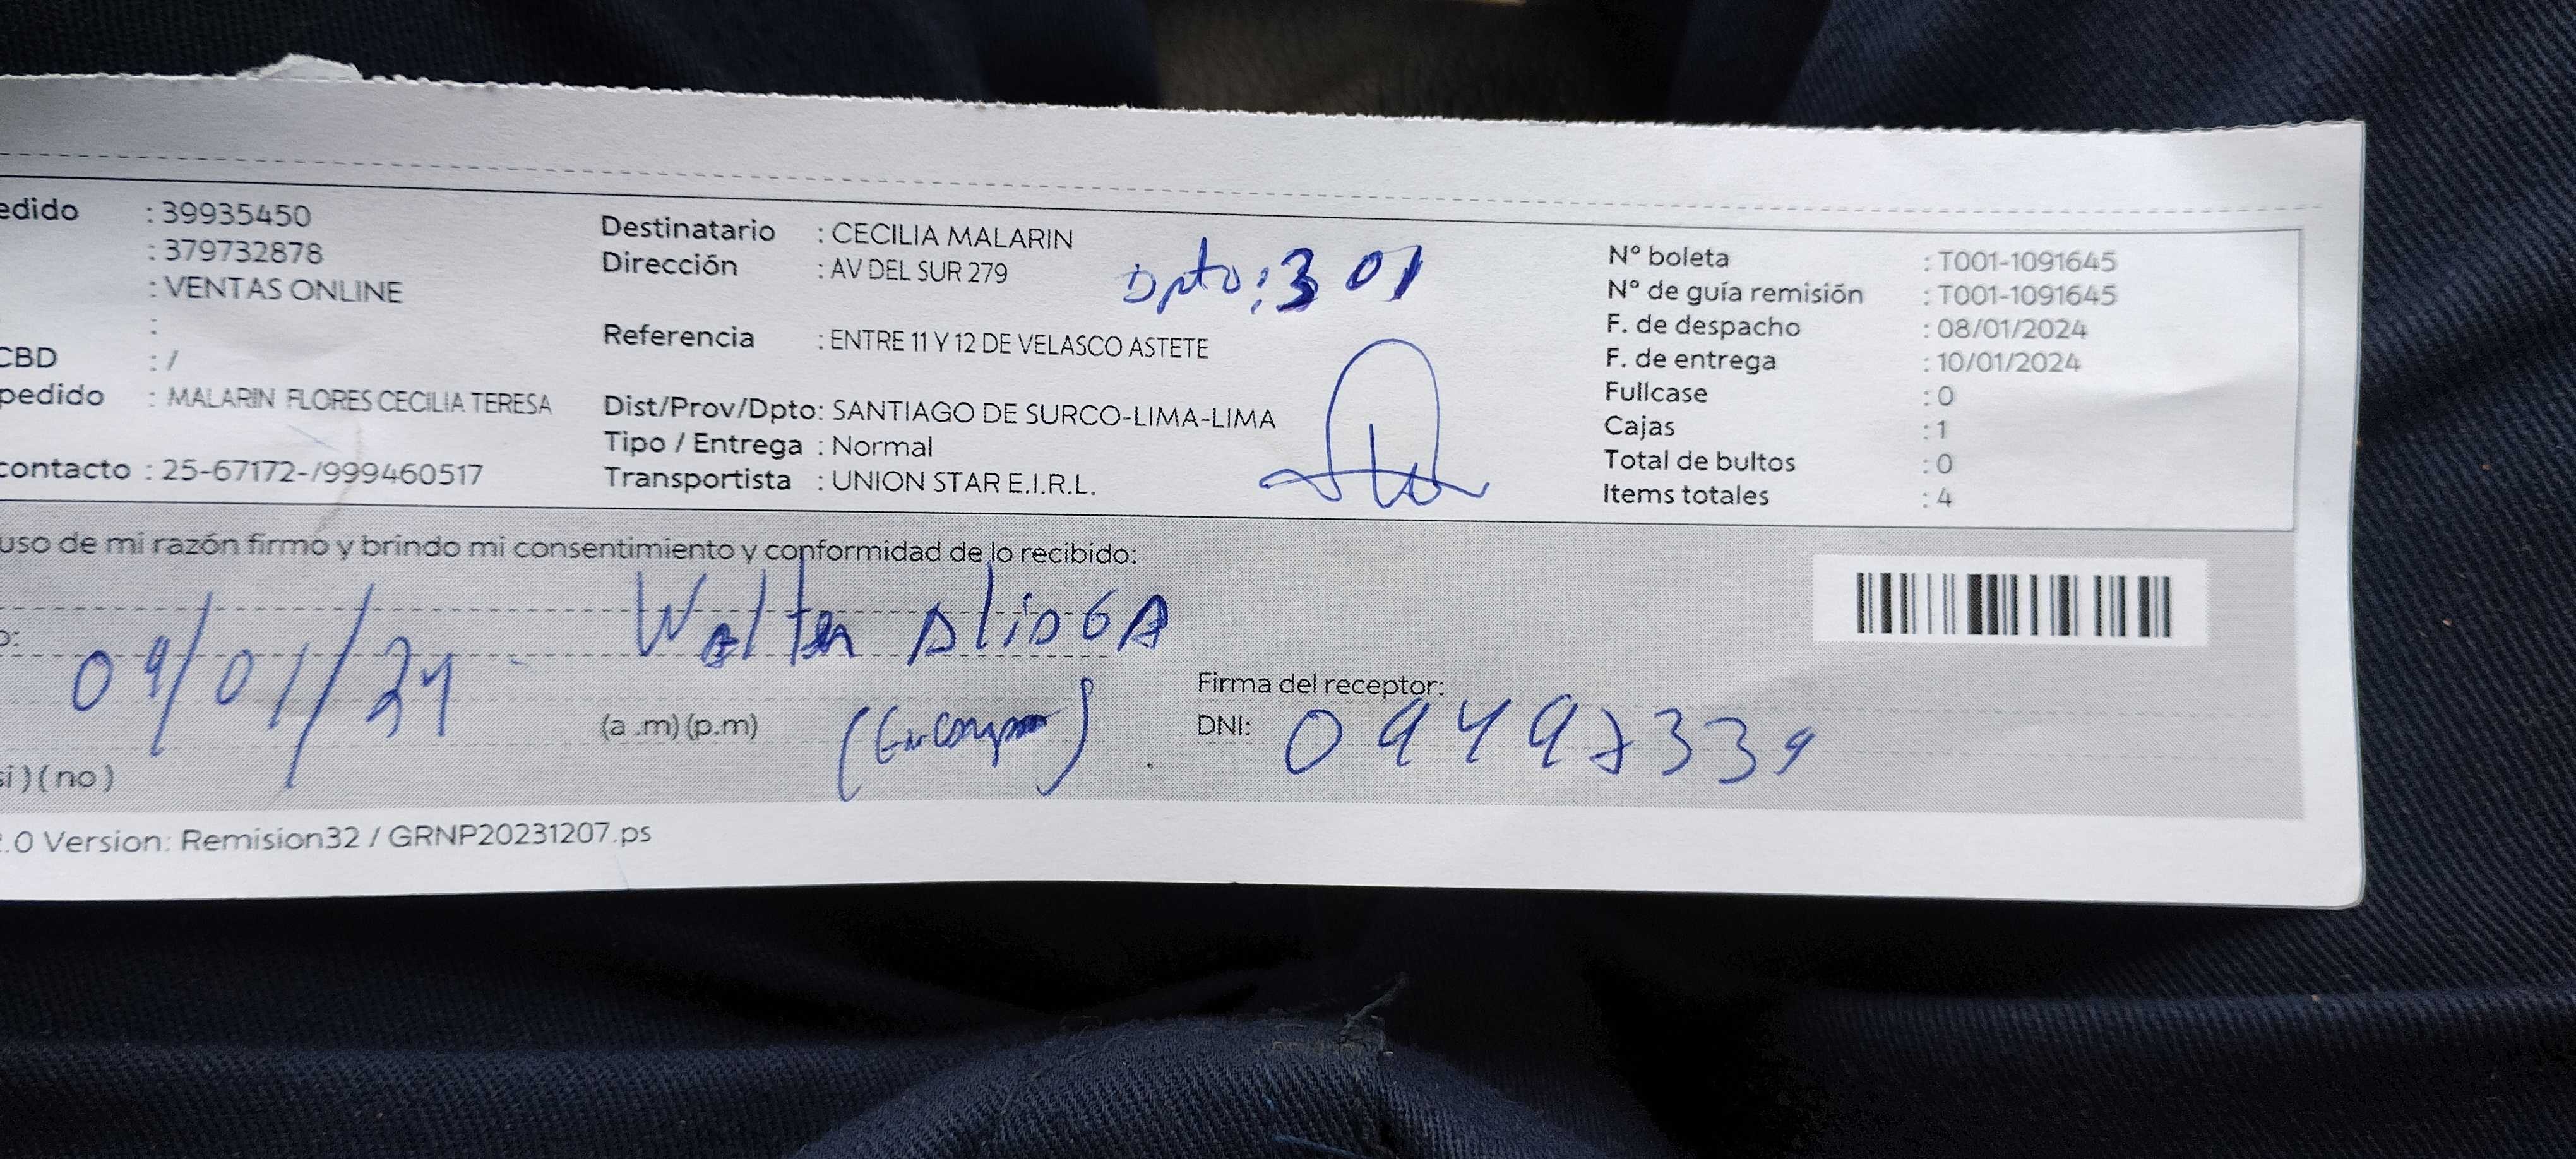 edido : 39935450
: 379732878
: VENTAS ONLINE
:
CBD : /
pedido : MALARIN FLORES CECILIA TERESA
contacto : 25-67172-/999460517
Destinatario : CECILIA MALARIN
Dirección : AV DEL SUR 279
Dpto: 301
Referencia : ENTRE 11 Y 12 DE VELASCO ASTETE
Dist/Prov/Dpto: SANTIAGO DE SURCO-LIMA-LIMA
Tipo / Entrega : Normal
Transportista : UNION STAR E.I.R.L.
Nº boleta : T001-1091645
Nº de guía remisión : T001-1091645
F. de despacho : 08/01/2024
F. de entrega : 10/01/2024
Fullcase : 0
Cajas : 1
Total de bultos : 0
Items totales : 4
uso de mi razón firmo y brindo mi consentimiento y conformidad de lo recibido:
o: 09/01/24
Walter AliaGA
(a .m) (p.m)
Firma del receptor:
DNI: 09497339
si ) ( no )
2.0 Version: Remision32 / GRNP20231207.ps